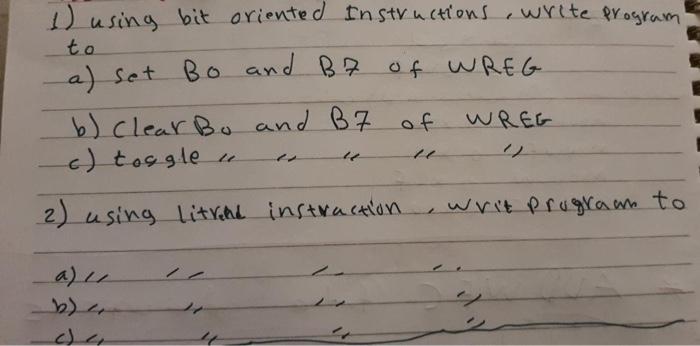 1) using bit oriented Instructions, write program
to
a) set B0 and B7 of WREG
b) Clear B0 and B7 of WREG
c) toggle " " " " "
2) using litral instraction, writ program to
a) " " " "
b) " " " "
c) " " " "